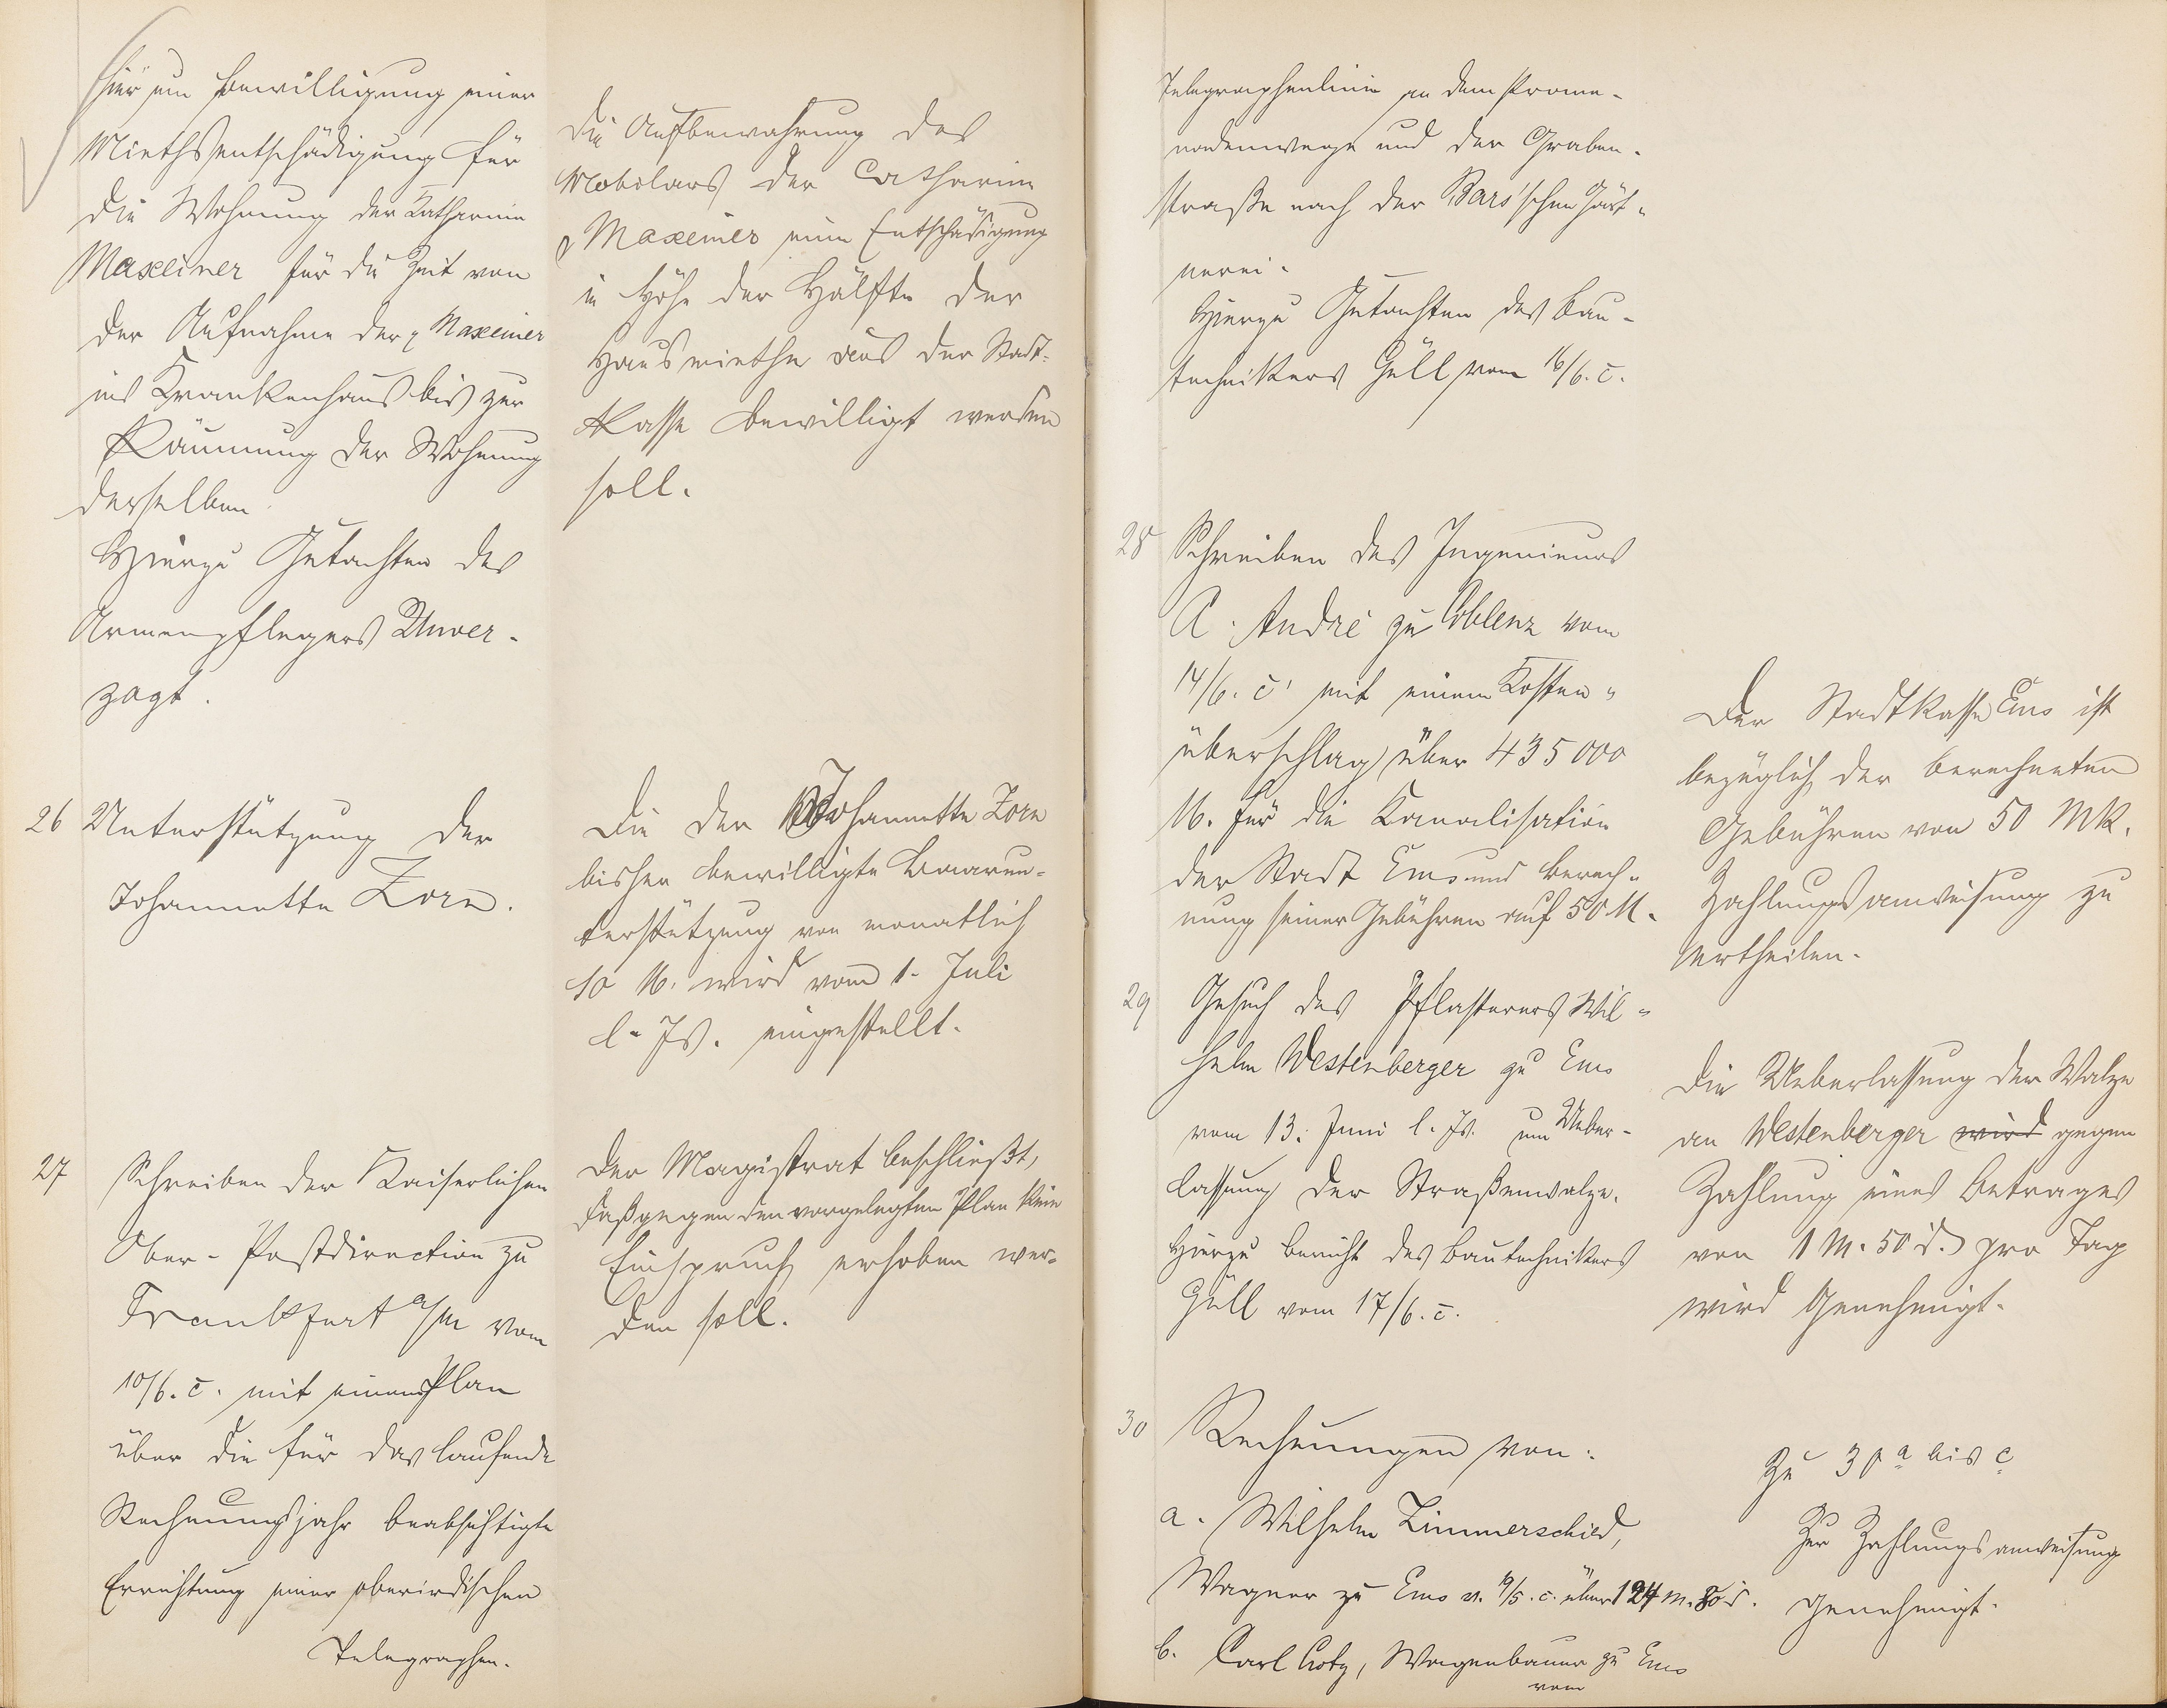 hier um Bewilligung einer
Miethsentschädigung für
die Wohnung der Katharina
Maxeiner für die Zeit von
der Aufnahme der p Maxeiner
ins Krankenhaus bis zur
Räumung der Wohnung
derselben.
Hierzu Gutachten des
Armenpflegers Unver-
zagt.
die Aufbewahrung des
Mobilars der Catharina
p Maxeiner eine Entschädigung
in Höhe der Hälfte der
Hausmiethe aus der Stadt-
kasse bewilligt werden
soll.
26 Unterstützung der
Johannette Zorn.
Die der Johannette Zorn
bisher bewilligte Baarun-
terstützung von monatlich
10 M. wird vom 1. Juli
l. Js. eingestellt.
27 Schreiben der Kaiserlichen
Ober-Postdirection zu
Frankfurt a/M vom
10/6. c. mit einem Plan
über die für das laufende
Rechnungsjahr beabsichtigte
Errichtung einer oberirdischen
Telegraphen-
Der Magistrat beschließt,
daß gegen den vorgelegten Plan kein
Einspruch erhoben wer-
den soll.
Telegraphenlinie an dem Prome-
nadenwege und der Graben-
straße nach der Bars'schen Gärt-
nerei.
Hierzu Gutachten des Bau-
technikers Güll vom 16/6. c.
28 Schreiben des Ingenieurs
A. André zu Coblenz vom
14/6. c. mit einem Kosten-
überschlag über 435000
M. für die Kanalisation
der Stadt Ems und Berech-
nung seiner Gebühren auf 50 M.
Der Stadtkasse Ems ist
bezüglich der berechneten
Gebühren von 50 Mk.
Zahlungsanweisung zu
ertheilen.
29 Gesuch des Pflasterers Wil-
helm Westenberger zu Ems
vom 13. Juni l. Js. um Ueber-
lassung der Straßenwalze.
Hierzu Bericht des Bautechnikers
Güll vom 17/6. c.
Die Ueberlassung der Walze
an Westenberger wird gegen
Zahlung eines Betrages
von 1 M. 50 d. pro Tag
wird genehmigt.
30 Rechnungen von:
a. Wilhelm Zimmerschied,
Wagner zu Ems v. /5. c. über 124 M. 80 d.
b. Carl , Wagenbauer zu Ems
vom
Zu 30 a bis c
Zur Zahlungsanweisung
genehmigt.